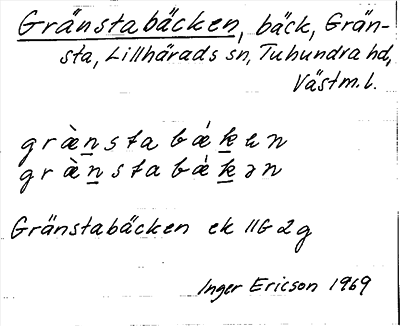 Gränstabäcken, bäck, Grän-
sta, Lillhärads sn, Tuhundra hd,
Västm. l.
græ̀nstabǽken
græ̀nstabǽkən
Gränstabäcken ek 11G2g
Inger Ericson 1969